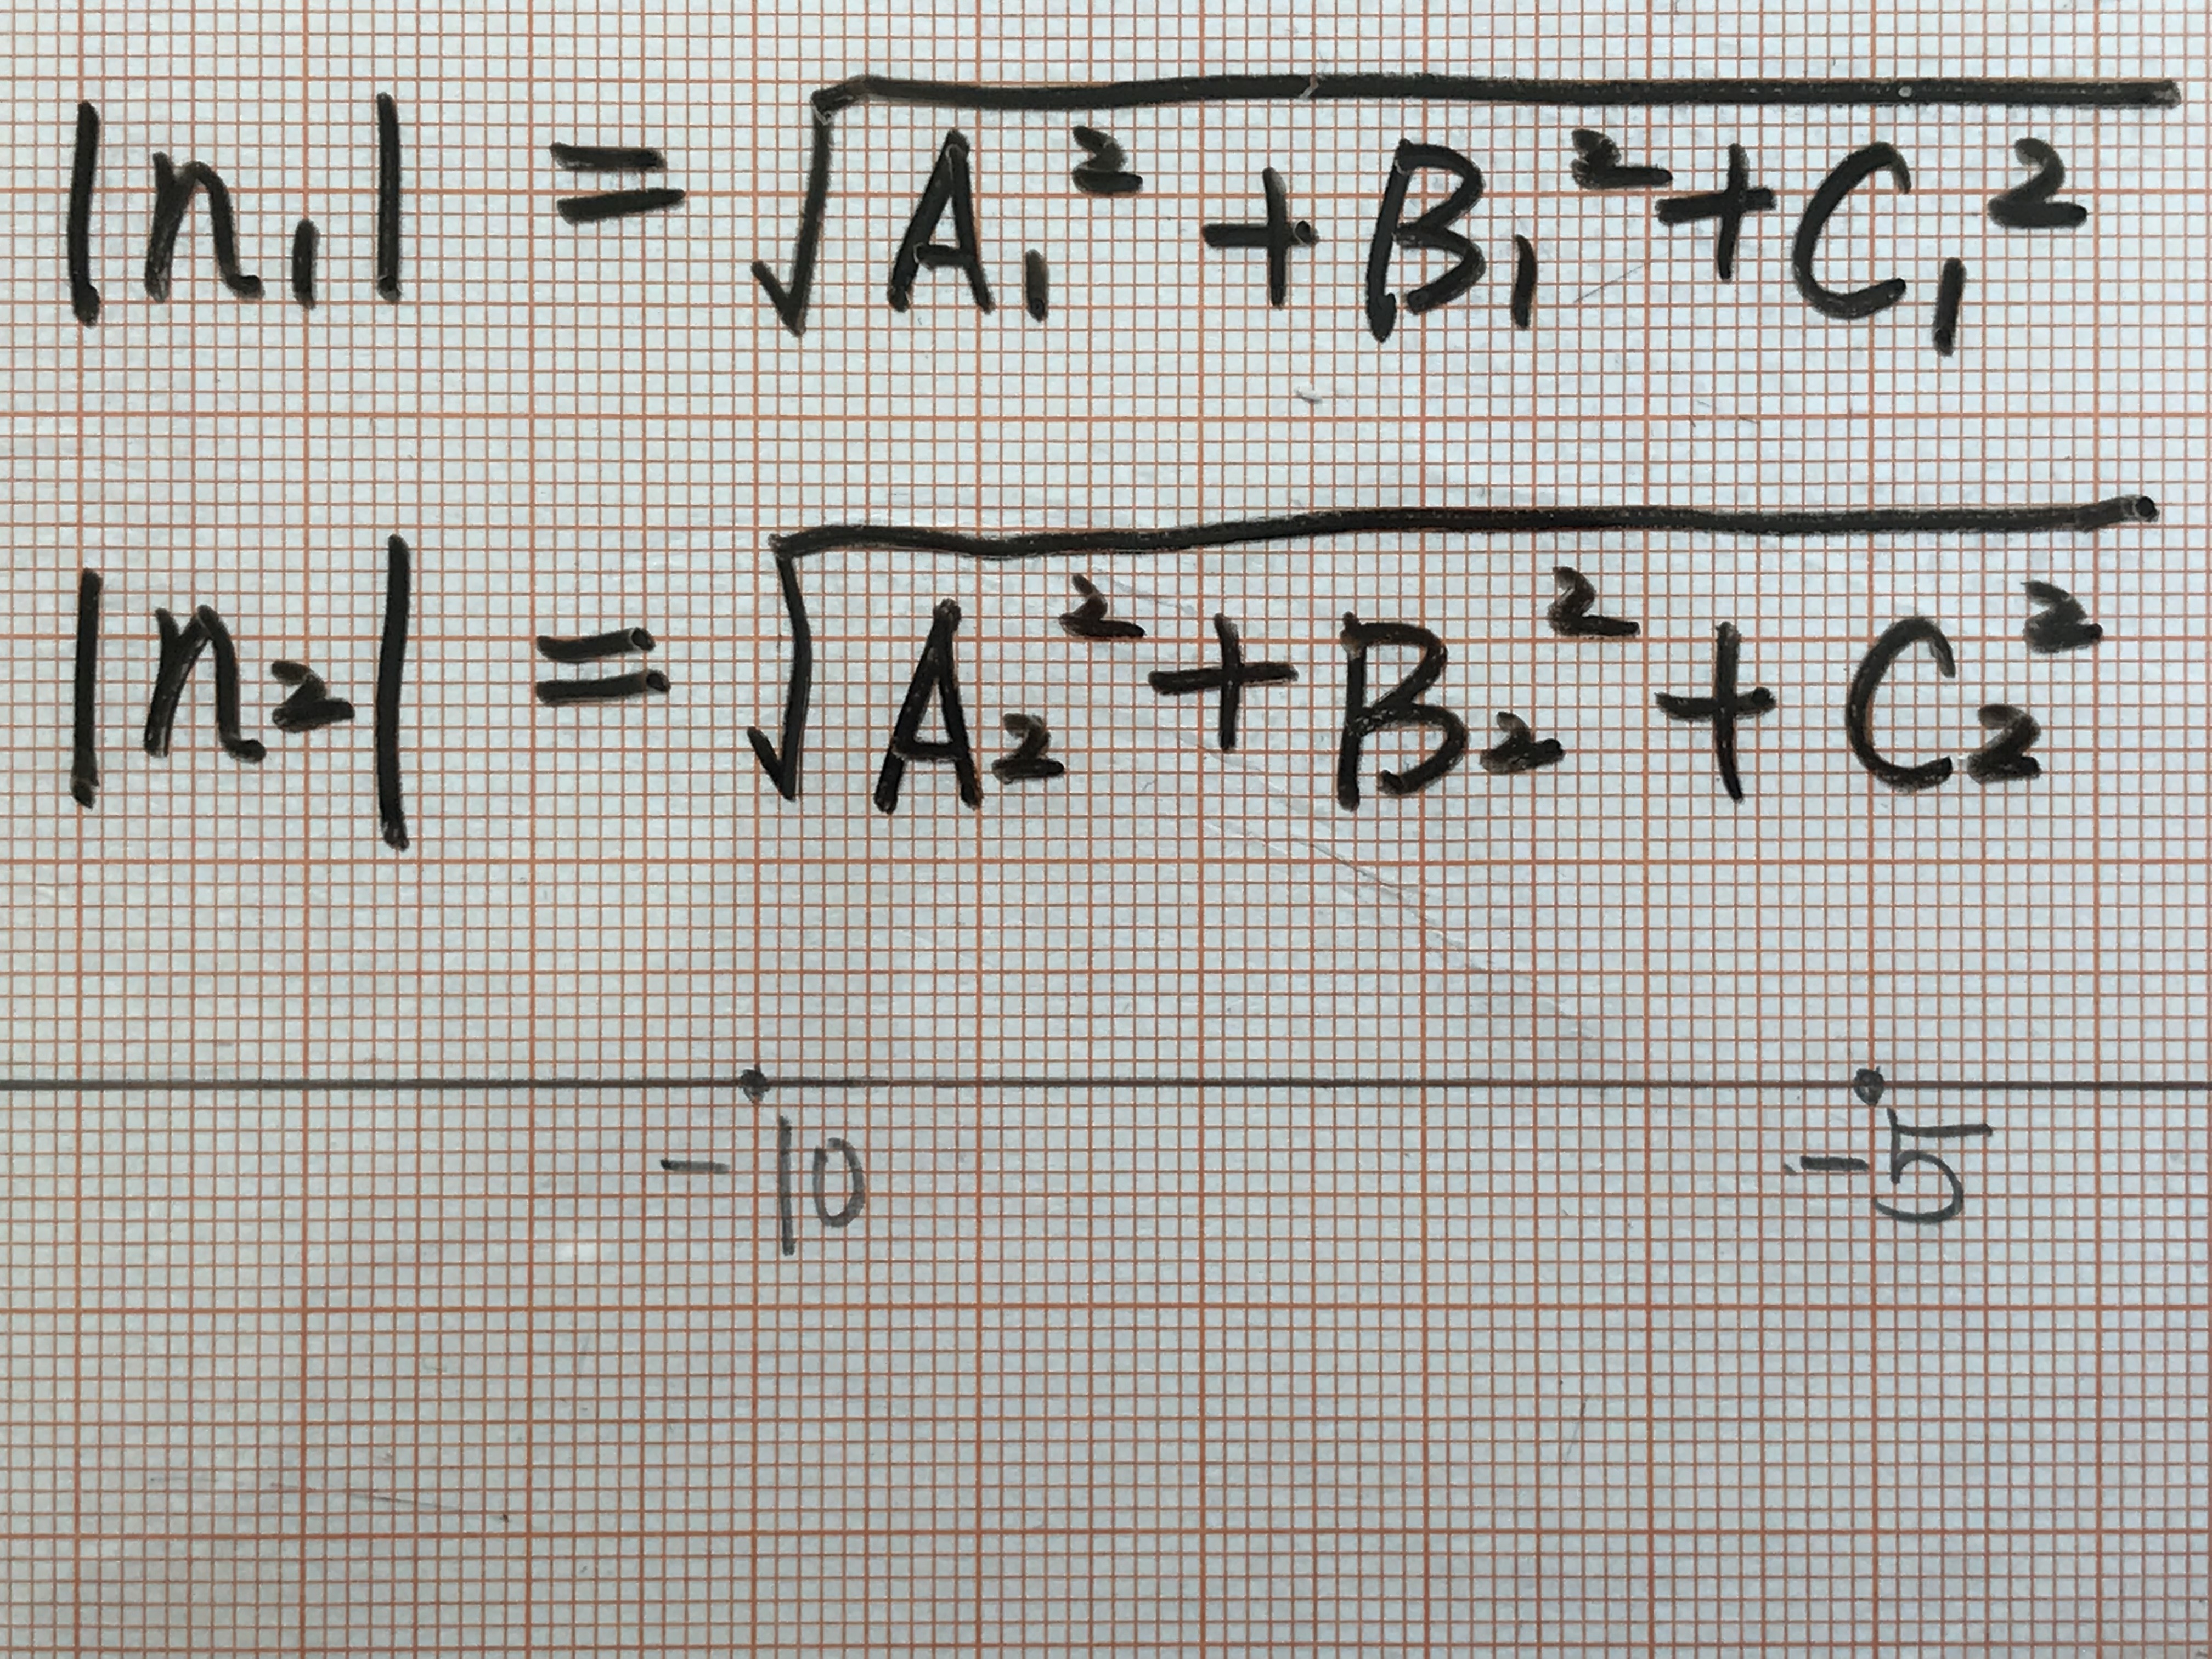 |n₁| = √(A₁² + B₁² + C₁²)
|n₂| = √(A₂² + B₂² + C₂²)
-10 -5